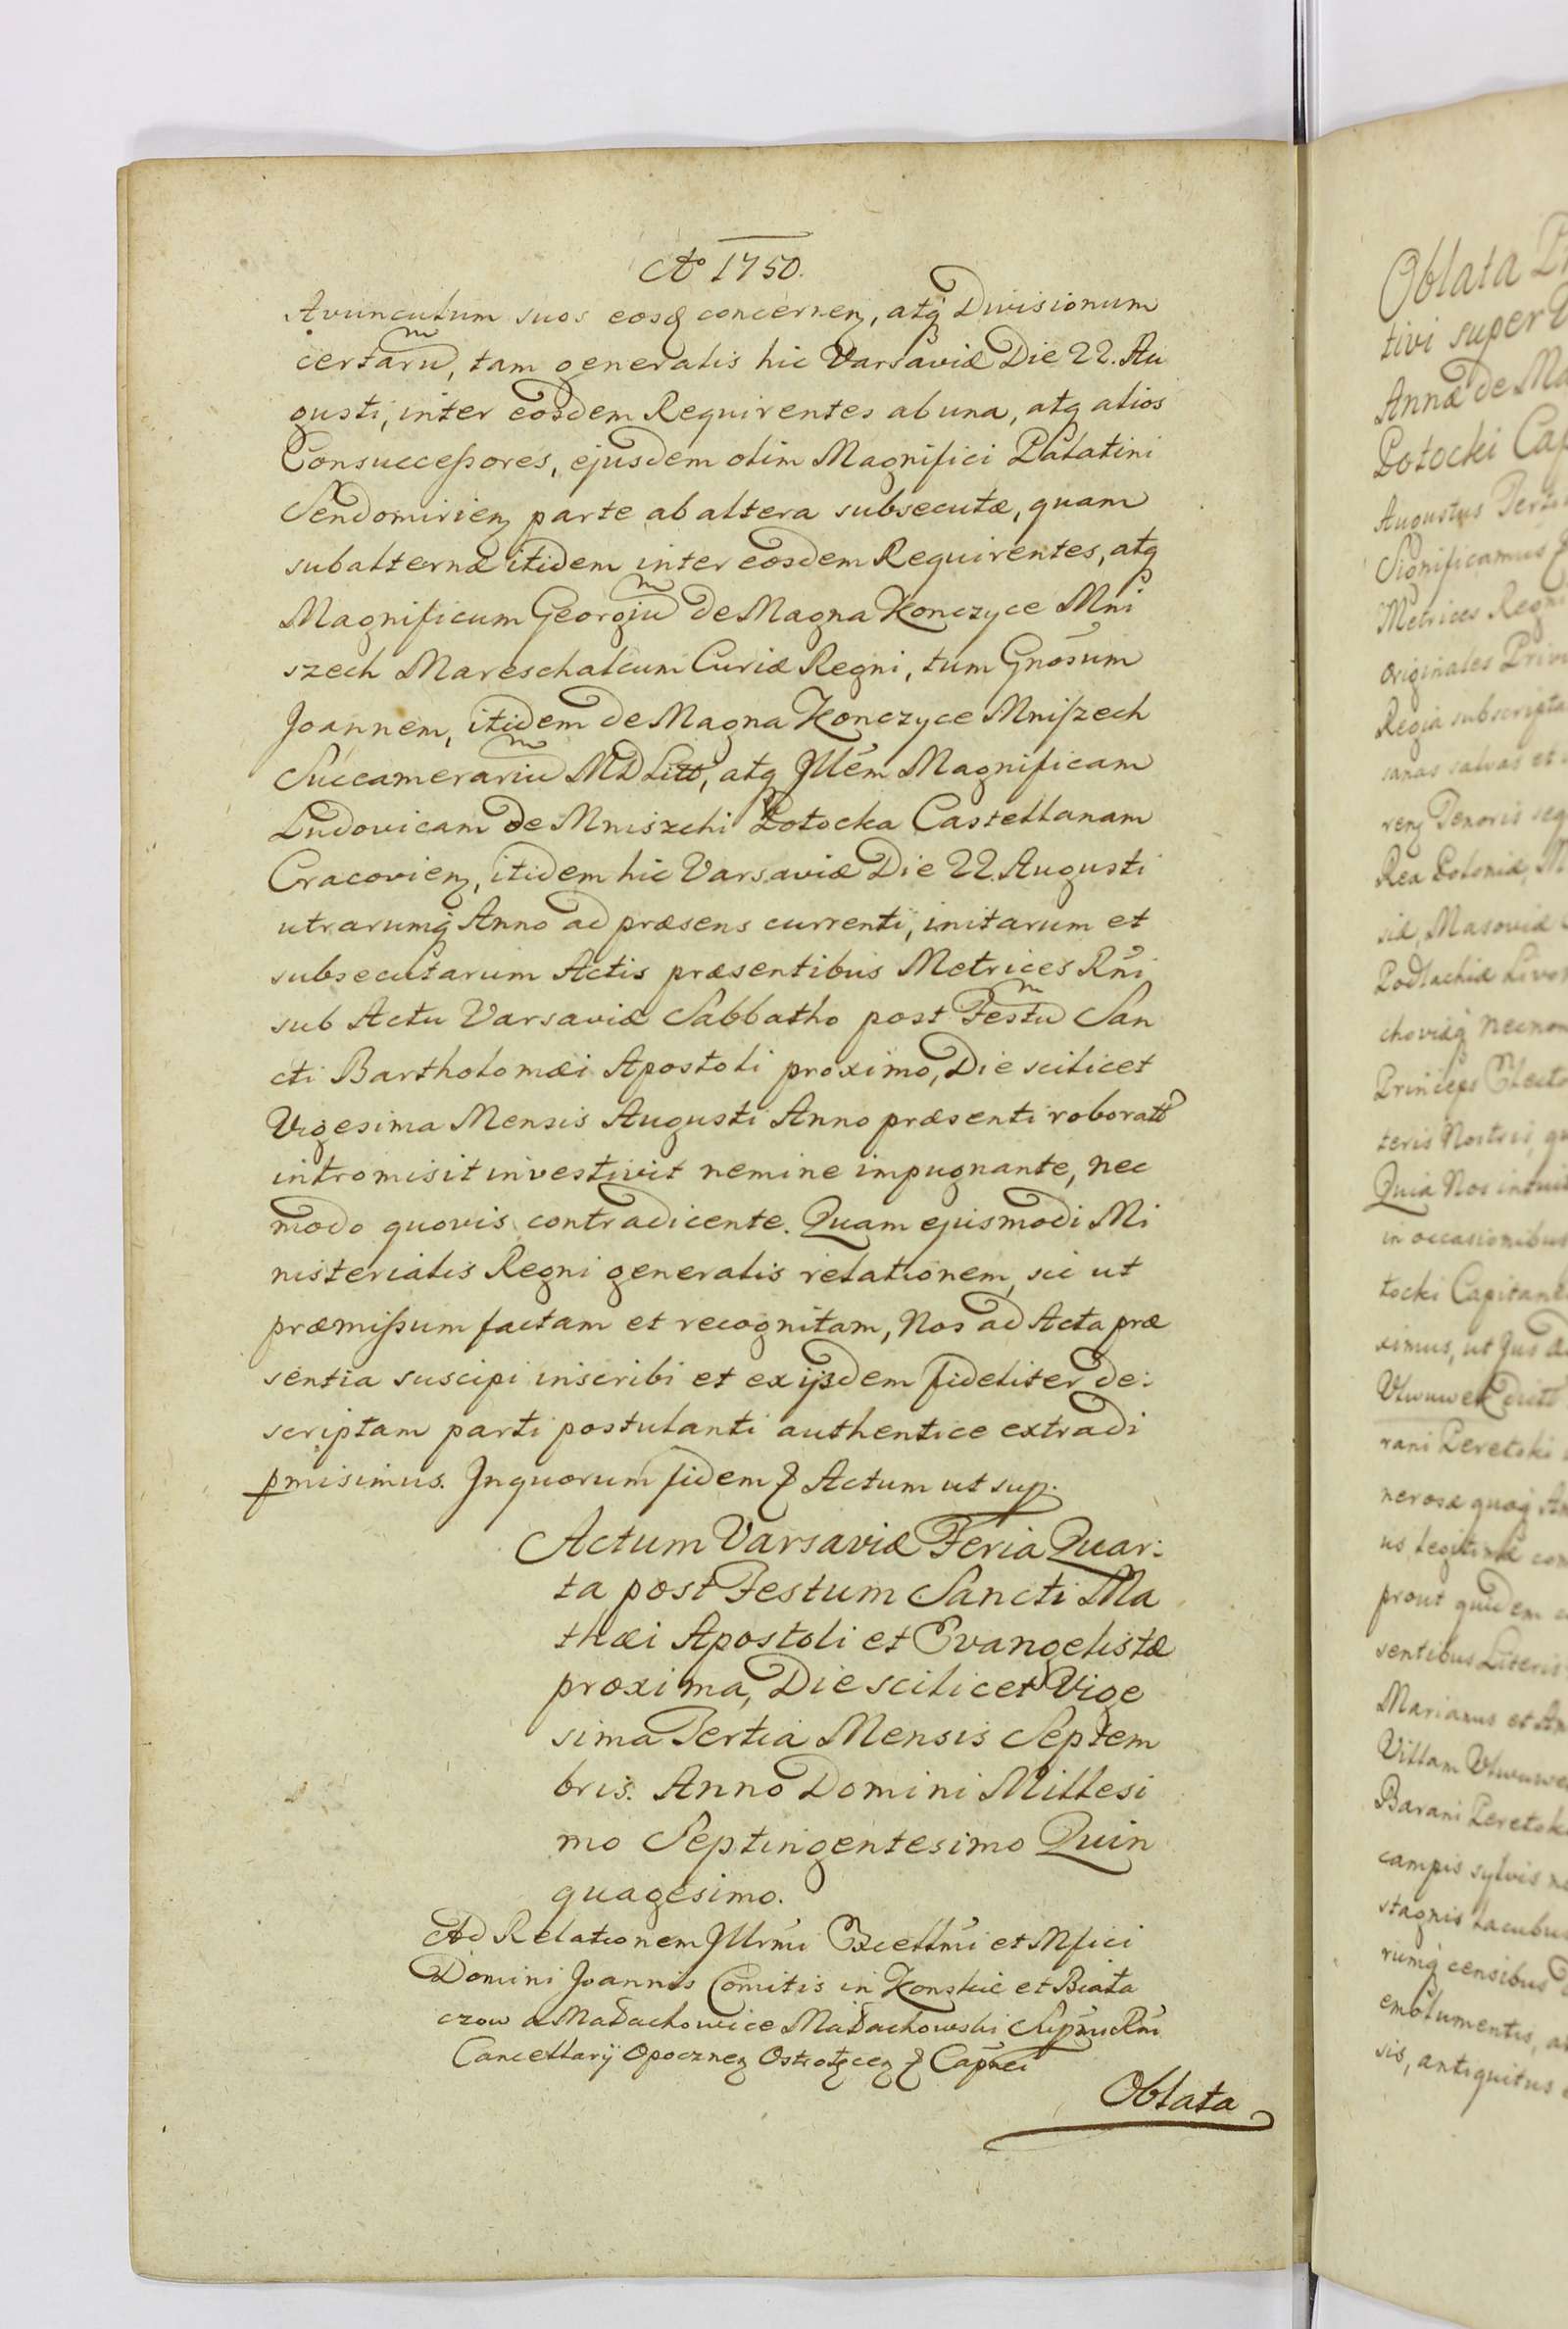 Ao 1750.
Avunculum suos eosq concernen, atq Divisionum
certaru, tam generalis hic Varsaviæ Die 22. Au
gusti, inter eosdem Requirentes ab una, atq alios
Consuccessores, ejusdem olim Magnifici Palatini
Sendomirien parte ab altera subsecutæ, quam
subalternæ itidem inter eosdem Requirentes, atq
Magnificum Georgiu de Magna Konczyce Mni
szech Mareschalcum Curiæ Regni, tum Gnosum
Joannem, itidem de Magna Konczyce Mniszech
Succamerariu MD Litt, atq Jllem Magnificam
Ludovicam de Mniszchi Potocka Castellanam
Cracovien, itidem hic Varsaviæ Die 22. Augusti
utrarumq Anno ad præsens currenti, initarum et
subsecutarum Actis præsentibus Metrices Rni
sub Actu Varsaviæ Sabbatho post Festu San
cti Bartholomæi Apostoli proximo, Die scilicet
Vigesima Mensis Augusti Anno præsenti roborat
intromisit investivit nemine impugnante, nec
modo quovis contradicente. Quam ejusmodi Mi
nisterialis Regni generalis relationem, sic ut
præmissum factam et recognitam, Nos ad Acta præ
sentia suscipi inscribi et ex ijsdem fideliter de:
scriptam parti postulanti authentice extradi
pmisimus. Jn quorum fidem & Actum ut sup.
Actum Varsaviæ Feria Quar:
ta post Festum Sancti Ma
thæi Apostoli et Evangelistæ
proxima, Die scilicet Vige
sima Tertia Mensis Septem
bris. Anno Domini Millesi
mo Septingentesimo Quin
quagesimo.
Ad Relationem Jllrmi Excellmi et Mfici
Domini Joannis Comitis in Konskie et Biała
czow a Małachowice Małachowski Supmi Rni
Cancellarij Opocznen Ostrołęcen & Capnei
Oblata
Oblata
tivi super
Annæ de Ma
Potocki Cap
Augustus
Significamus
Metrices Regni
originales
Regia subscripta
sanas salvas et
Tenoris
Rex Poloniæ
siæ, Masoviæ
Podlachiæ
necnon
Princeps
teris Nostris,
Quia Nos
in occasionibus
tocki
ximus, ut Jus
rani
nerosæ quoq
prout quidem
sentibus Literis
Marianus et
Villam
Barani
campis sylvis
stagnis lacubus
rumq censibus
emolumentis,
sis, antiquitus